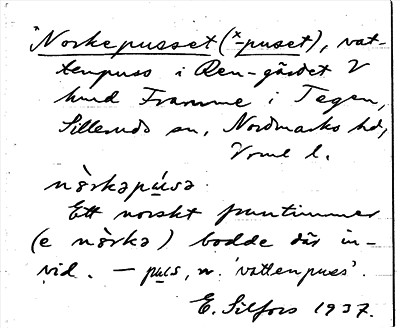 *Norkepusset (x-puset), vat-
tenpuss i Ren-gärdet V
hmd Framme i Tegen,
Silleruds sn, Nordmarks hd,
Vrml l.
nòrkəpúsə
Ett norskt fruntimmer
(e nòrkə) bodde där in-
vid. — pus, n. 'vattenpuss'.
E. Silfors 1937.